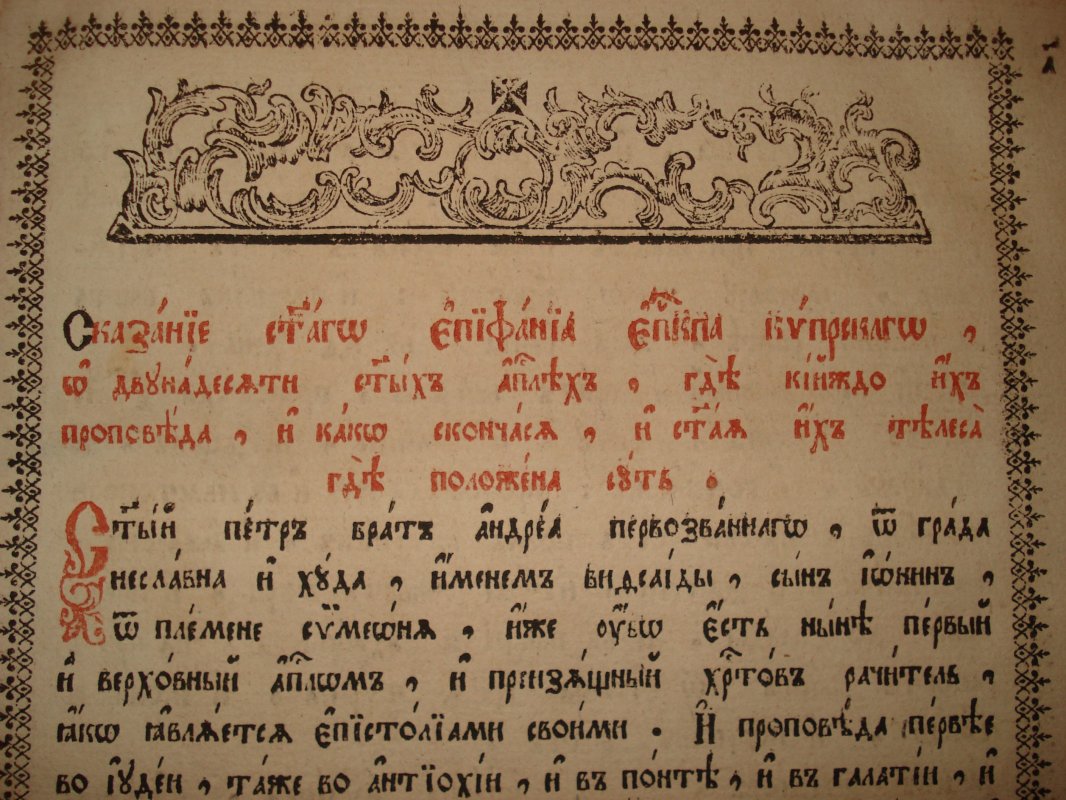 а҃
Сказа́нїе ст҃а́гѡ є҆пїфа́нїѧ є҆пⷭ҇кпа ку́прскагѡ ,
ѡ҆ двуна́десѧти ст҃ы́хъ а҆пⷭ҇лѣхъ , гдѣ̀ кі́йждо и҆́хъ
проповѣ́да , и҆ ка́кѡ сконча́сѧ , и҆ ст҃а́ѧ и҆́хъ тѣлеса̀
гдѣ̀ положе́на сꙋ́ть .
Ст҃ы́й пе́тръ бра́тъ а҆ндре́а первозва́ннагѡ , ѿ гра́да
несла́вна и҆ хꙋ́да , и҆́менемъ виѳсаі́ды , сы́нъ і҆ѡ́нинъ ,
ѿ пле́мене сѷмеѡ́нѧ , и҆́же ᲂу҆́бѡ є҆́сть ны́нѣ пе́рвый
и҆ верхо́вный а҆пⷭ҇лѡмъ , и҆ преизѧ́щный хрⷭ҇то́въ рачи́тель ,
ꙗ҆́кѡ ꙗ҆влѧ́етсѧ є҆пїсто́лїами свои́ми . И҆ проповѣ́да пе́рвѣе
во і҆ꙋде́и , та́же во а҆нтїохі́и , и҆ въ по́нтѣ , и҆ въ галаті́и , и҆